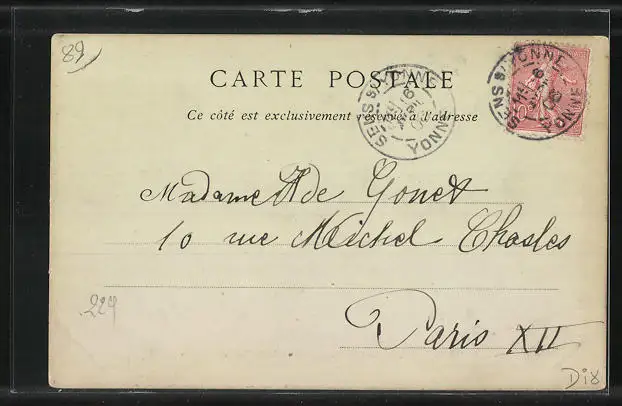 89
CARTE POSTALE
Ce côté est exclusivement réservé à l'adresse
SENS S/ YONNE
YONNE
SENS S/ YONNE
YONNE
Madame H de Gonet
10 rue Michel Chasles
Paris XII
229
Dix